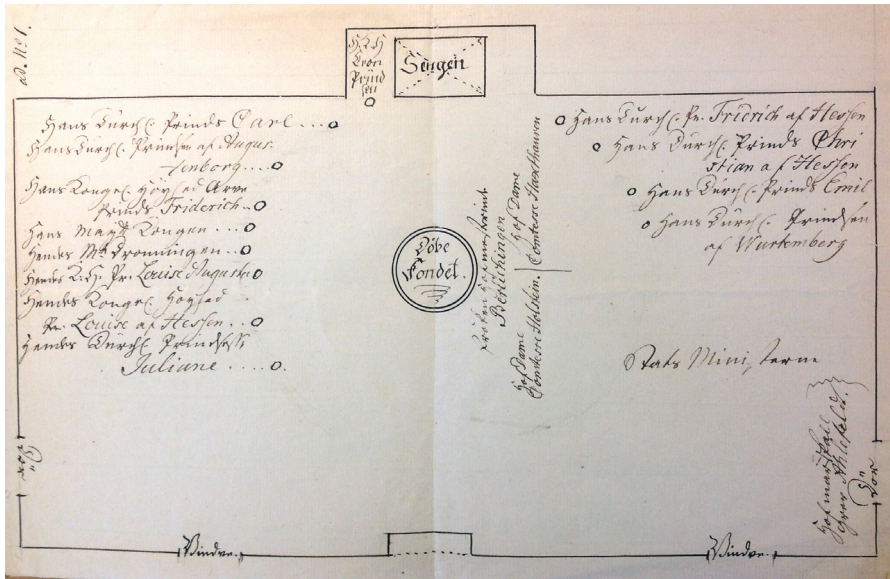 ad. No 1.
H. K. H
Cron
Prind
sen
Sengen
Hans Dürchl. Prinds Carl ... o
Hans Dürchl. Prindsen af Augus-
tenborg ... o
Hans Kongel. Höyhed Arve
Prinds Friderich .. o
Hans Mayt. Kongen ... o
Hendes Mt. Dronningen .. o
Hendes K. H. Pr. Louise Augusta o
Hendes Kongel. Höyhed
Pr. Louise af Hessen .. o
Hendes Dürchl. Prindsesse
Juliane .... o.
Döbe
Fondet.
Fröken Hofmesterinde
Benichingen
Hof Dame
Comtesse Haxthausen
Hof Dame
Comtesse Holstein.
o Hans Dürchl. Pr. Friderich af Hessen
o Hans Dürchl. Prinds Chri
stian af Hessen
o Hans Dürchl. Prinds Emil
o Hans Dürchl. Prindsen
af Würtemberg
Stats Ministerne
Hofmarskall
Grev Ahlefeld.
Dör
Dör
Vindve.
Vindve.